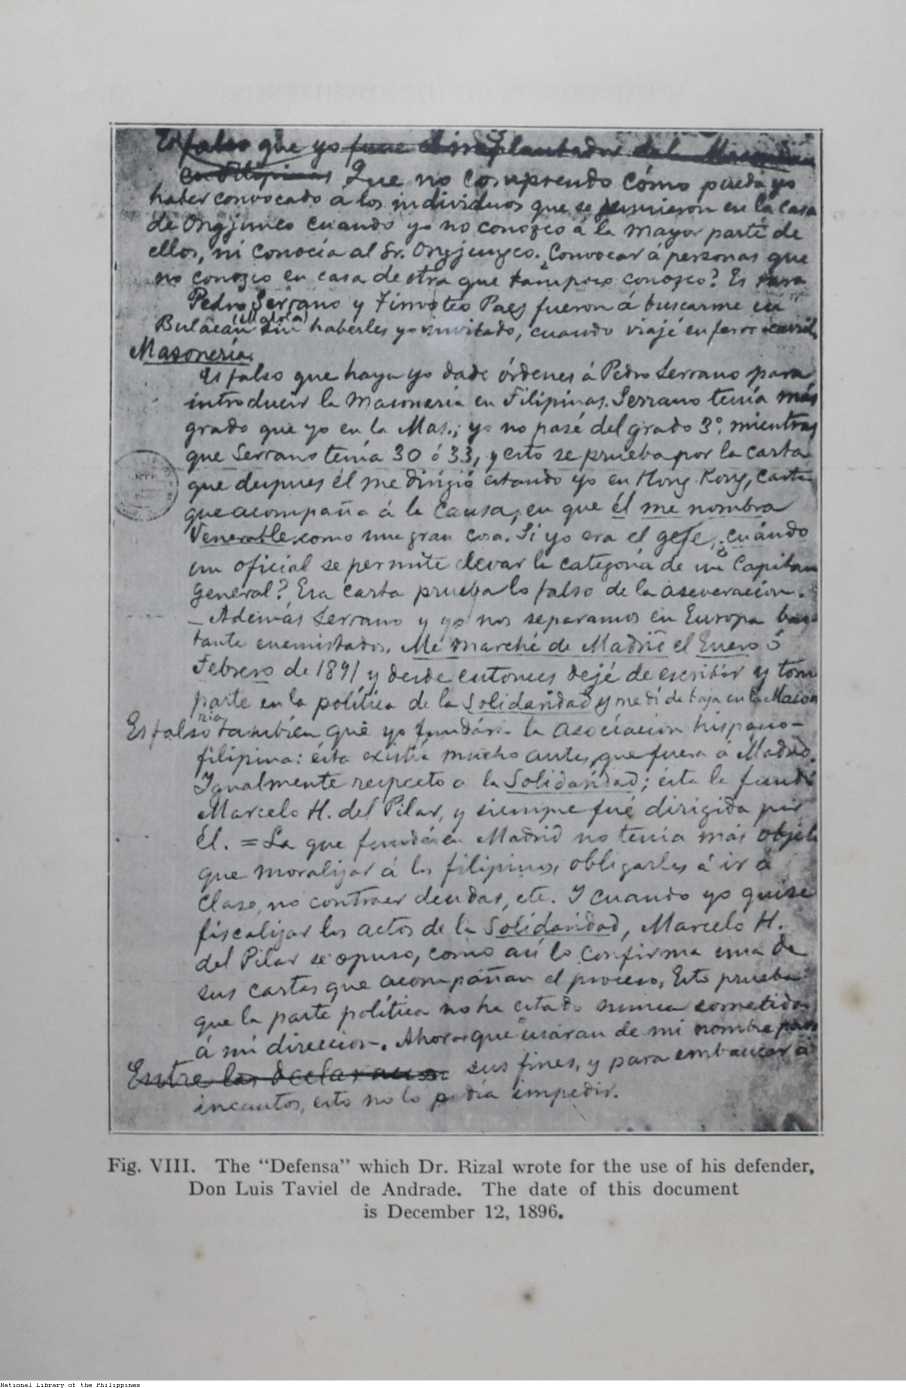 Es falso que yo fuese el implantador de la Masonería
en Filipinas Que no comprendo cómo pueda yo
haber convocado a los individuos que se reunieron en la casa
de Ongjunco cuando yo no conozco á la mayor parte de
ellos, ni conocía al Sr. Ongjungco. ¿Convocar á personas que
no conozco en casa de otra que tampoco conozco? Es rara
Pedro Serrano y Timoteo Paez fueron á buscarme en
Bulacan (Malolos) sin haberles yo invitado, cuando viajé en ferrocarril
Masonería.
Es falso que haya yo dado órdenes á Pedro Serrano para
introducir la Masonería en Filipinas. Serrano tenía más
grado que yo en la Mas.; yo no pasé del grado 3º. mientras
que Serrano tenía 30 ó 33, y esto se prueba por la carta
que despues él me dirigió estando yo en Hong-Kong, carta
que acompaña á la causa, en que él me nombra
Venerable, como una gran cosa. Si yo era el gefe, ¿cuándo
un oficial se permite elevar la categoría de un Capitan
General? Esa carta prueba lo falso de la aseveracion.
_ Además Serrano y yo nos separamos en Europa bas-
tante enemistados. Me marché de Madrid el Enero ó
Febrero de 1891 y desde entonces dejé de escribir y tomar
parte en la política de la Solidaridad y me dí de baja en la Mason
ría
Es falso también que yo fundára la asociacion hispano-
filipina: ésta existía mucho antes que fuera á Madrid.
Igualmente respecto a la Solidaridad; esta la fundó
Marcelo H. del Pilar, y siempre fué dirigida por
él. = La que fundé en Madrid no tenía más objeto
que moralizar á los filipinos, obligarles á ir á
clase, no contraer deudas, etc. Y cuando yo quise
fiscalizar los actos de la Solidaridad, Marcelo H.
del Pilar se opuso, como así lo confirma una de
sus cartas que acompañan el proceso, Esto prueba
que la parte política no ha estado nunca sometida
á mi direccion. Ahora que usaran de mi nombre para
Entre las declaraciones sus fines, y para embaucar á
incautos, esto no lo podía impedir.
Fig. VIII. The "Defensa" which Dr. Rizal wrote for the use of his defender,
Don Luis Taviel de Andrade. The date of this document
is December 12, 1896.
National Library of the Philippines